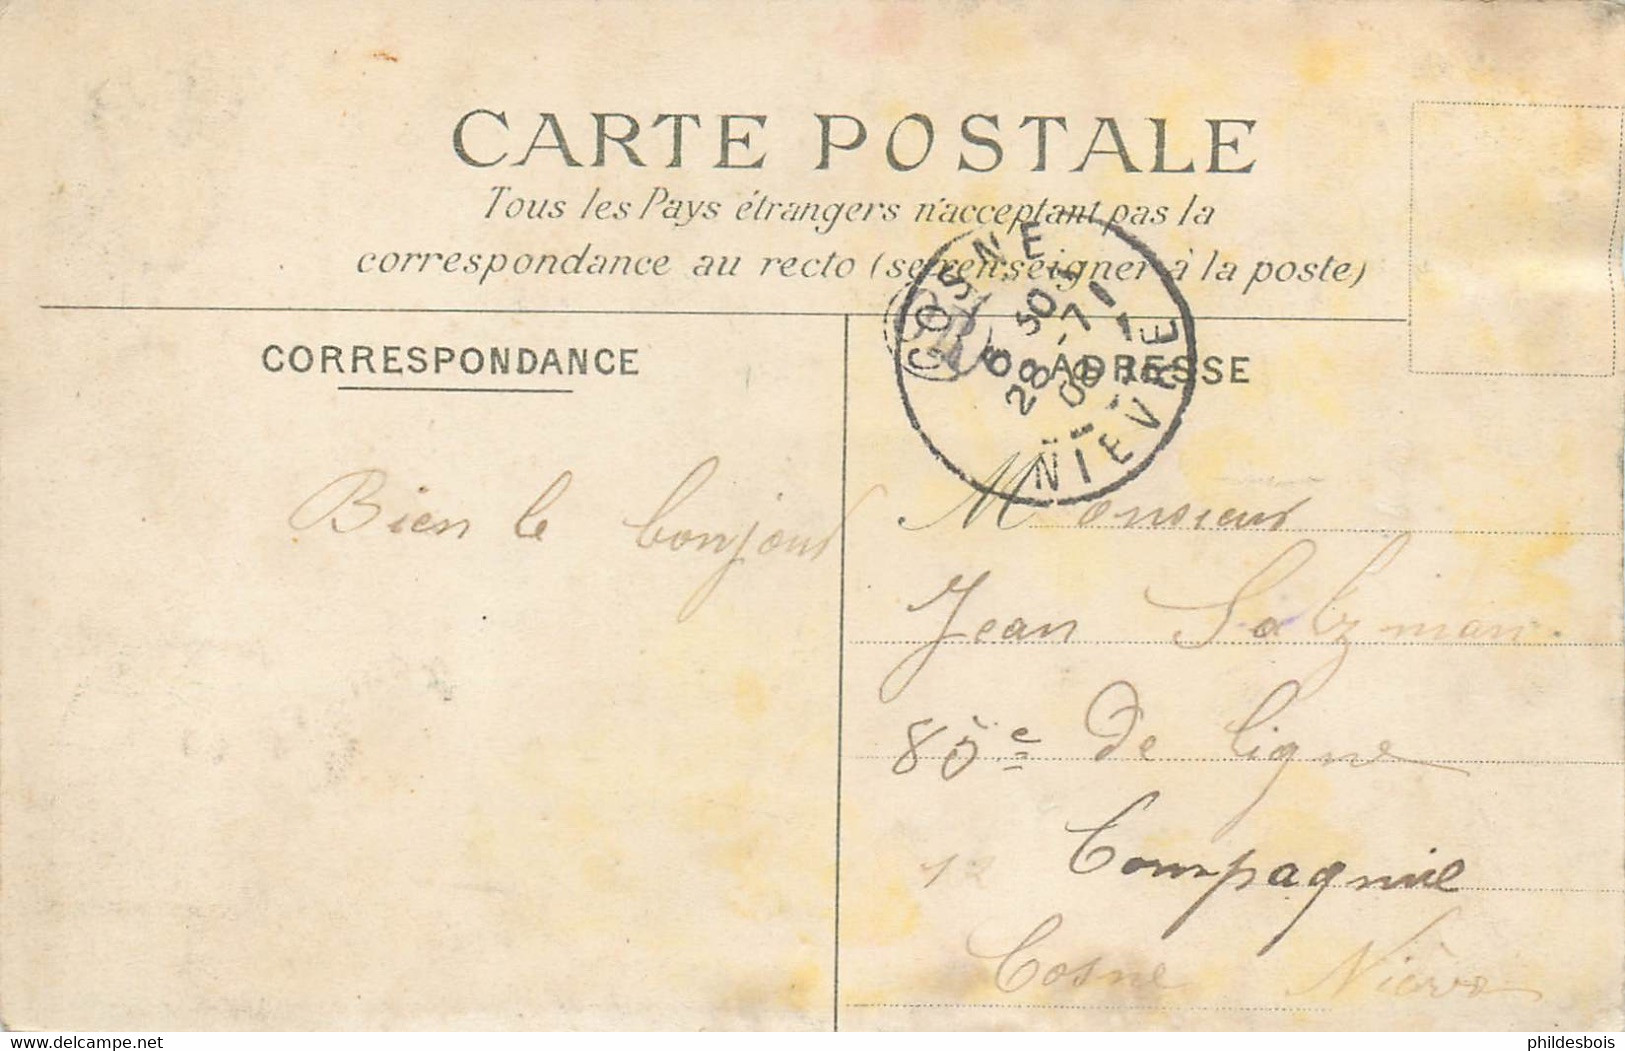 CARTE POSTALE
Tous les Pays étrangers n'acceptant pas la
correspondance au recto (se renseigner à la poste)
CORRESPONDANCE
ADRESSE
COSNE
28 -7
08
NIEVRE
Bien le bonjour
Monsieur
Jean Salzman
85e de ligne
Compagnie
Cosne Nièvre
www.delcampe.net
phildesbois